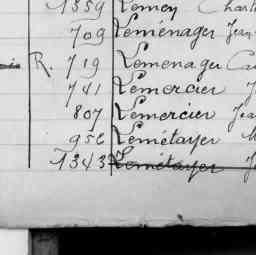 1359 Lemen Charl
709 Leménager Jean
R. 719 Lemenager Ca
741 Lemercier J
807 Lemercier Jea
956 Lemétayer M
1343 Lemétayer Je